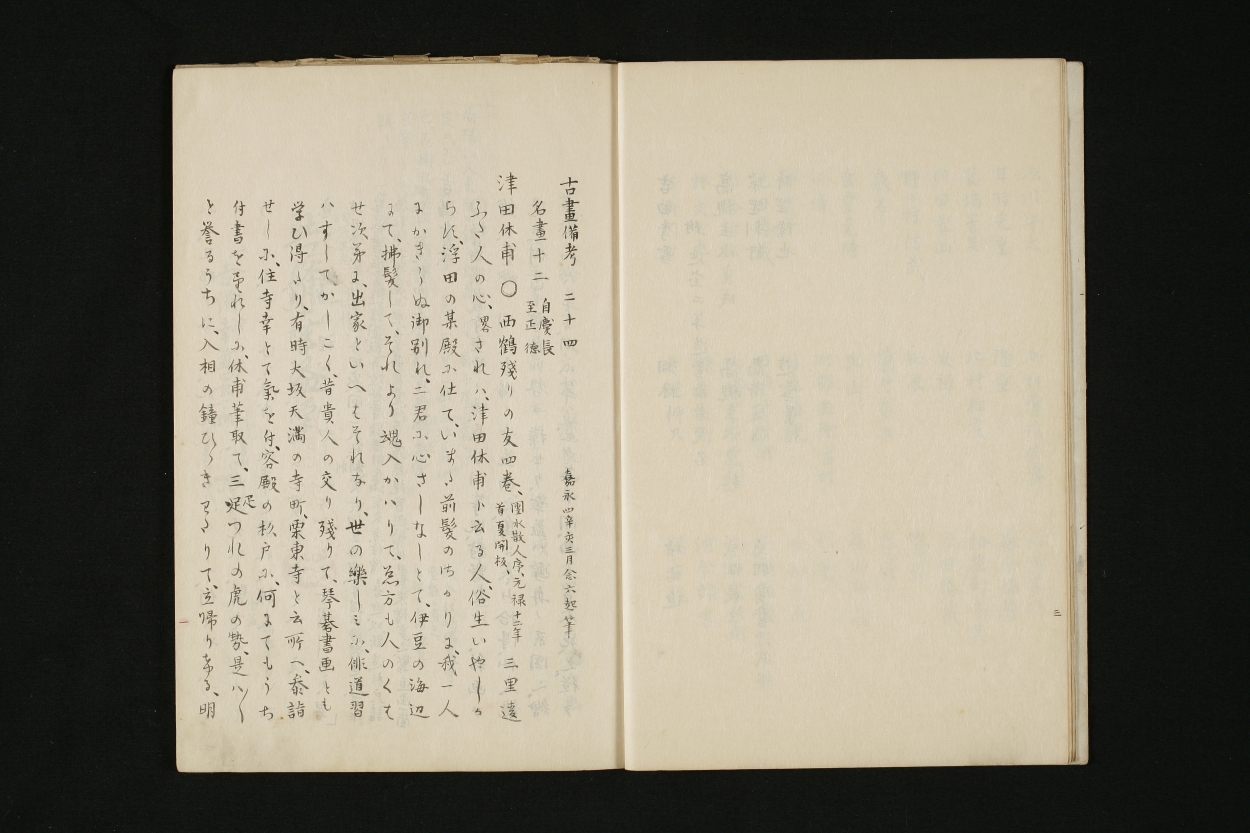 三
古畫備考 二十四 嘉永四辛亥三月念六起筆
名畫十二 自慶長至正德
津田休甫 〇 西鶴殘りの友四巻、團水散人序、元禄十二年首夏開板、 三里違
ふ人の心、畧されハ、津田休甫と云る人、俗生いやしか
らに、浮田の某殿に仕て、いまた前髪のさかりに、我一人
にかきらぬ御別れ、二君に心さしなしとて、伊豆の海辺
にて、拂髪して、それより魂入かハりて、忽方も人のくち
せ次第に、出家といへはそれなり、世の樂しミに、俳道習
ハすして、かしこく、昔貴人の交り殘りて、琴碁書画とも
学ひ得たり、有時大坂天満の寺町、栗東寺と云所へ、参詣
せしに、住寺幸とて氣を付、客殿の杉戸に、何にてもうち
付書を望れしに、休甫筆取て、三疋つれの虎の勢、是ハ〱
と誉るうちに、入相の鐘ひゝきわたりて、立帰り来る、明